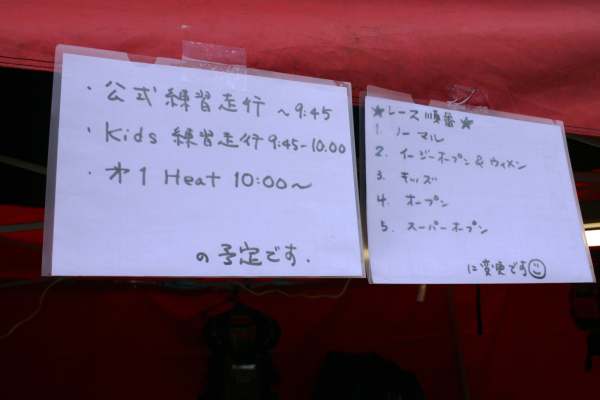 ・公式練習走行 〜9:45
・Kids 練習走行 9:45-10:00
・オ1 Heat 10:00〜
の予定です.
★レース順番★
1. ノーマル
2. イージーオープン & ウィメン
3. キッズ
4. オープン
5. スーパーオープン
に変更です☺